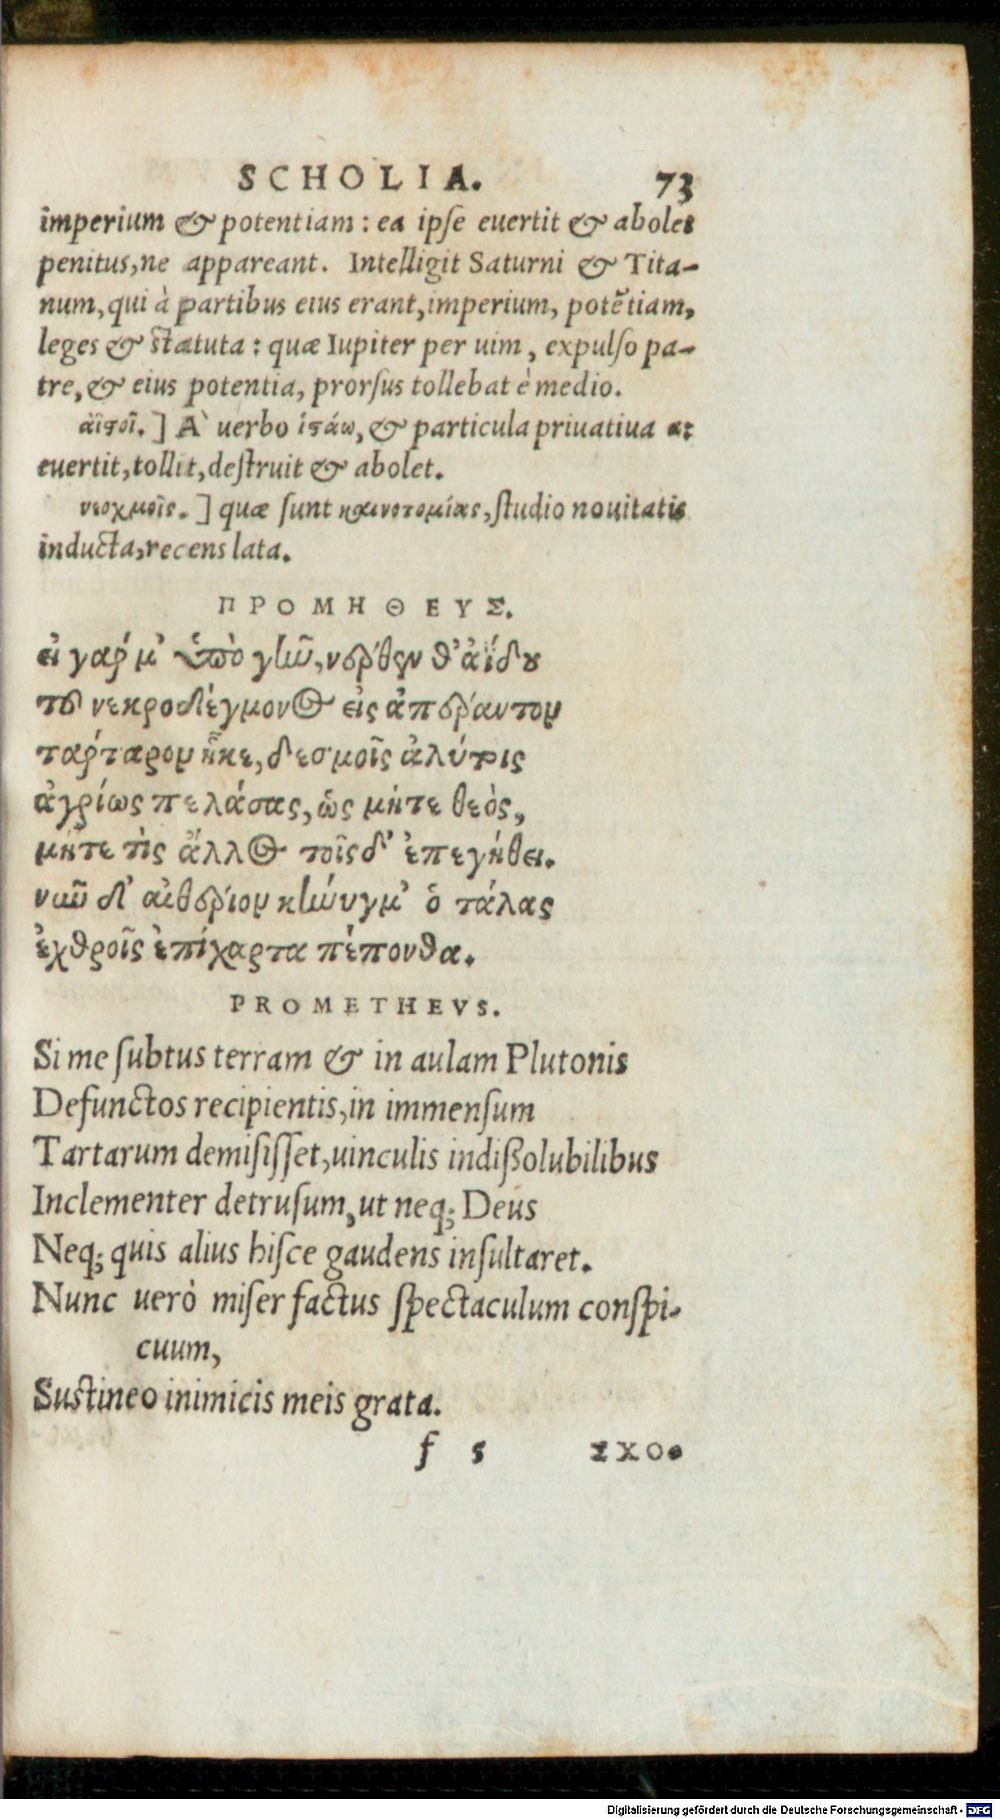 SCHOLIA. 73
imperium & potentiam: ea ipſe euertit & abolet
penitus, ne appareant. Intelligit Saturni & Tita-
num, qui à partibus eius erant, imperium, potẽtiam,
leges & ſtatuta: quæ Iupiter per uim, expulſo pa-
tre, & eius potentia, prorſus tollebat è medio.
ἀϊστοῖ.] A` uerbo ἱστάω, & particula priuatiua α:
euertit, tollit, deſtruit & abolet.
νεοχμοῖς.] quæ ſunt καινοτομίας, ſtudio nouitatis
inducta, recens lata.
ΠΡΟΜΗΘΕΥΣ.
εἰ γαρ́ μ' ὑπὸ γῆν, νέρθεν θ' ἀΐδου
τοῦ νεκροδέγμονος εἰς ἀπέραντον
τάρταρον ἧκε, δεσμοῖς ἀλύτοις
ἀγρίως πελάσας, ὡς μήτε θεὸς,
μήτε τὶς ἄλλος τοῖς δ' ἐπεγήθει.
νῦν δ' αἰθέριον κίνυγμ' ὁ τάλας
ἐχθροῖς ἐπίχαρτα πέπονθα.
PROMETHEVS.
Si me ſubtus terram & in aulam Plutonis
Defunctos recipientis, in immenſum
Tartarum demiſiſſet, uinculis indiſſolubilibus
Inclementer detruſum, ut neq; Deus
Neq; quis alius hiſce gaudens inſultaret.
Nunc uerò miſer factus ſpectaculum conſpi-
cuum,
Sustineo inimicis meis grata.
f 5 ΣΧΟ.
Digitalisierung gefördert durch die Deutsche Forschungsgemeinschaft - DFG